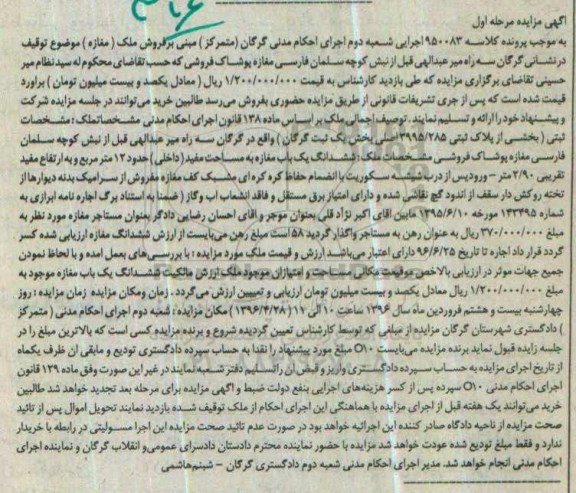 آگهی مزایده مرحله اول
به موجب پرونده کلاسه ۹۵۰۰۸۳ اجرایی شعبه دوم اجرای احکام مدنی گرگان (متمرکز) مبنی برفروش ملک ( مغازه ) موضوع توقیف
در نشانی گرگان سه راه میر عبدالهی قبل از نبش کوچه سلمان فارسی مغازه پوشاک فروشی که حسب تقاضای محکوم له سید نظام میر
حسینی تقاضای برگزاری مزایده که طی بازدید کارشناس به قیمت ۱/۲۰۰/۰۰۰/۰۰۰ ریال ( معادل یکصد و بیست میلیون تومان ) براورد
قیمت شده است که پس از جری تشریفات قانونی از طریق مزایده حضوری بفروش می رسد طالبین خرید می توانند در جلسه مزایده شرکت
و پیشنهاد خود را ارائه و تسلیم نمایند . توصیف اجمالی ملک بر اساس ماده ۱۳۸ قانون اجرای احکام مدنی مشخصات ملک : مشخصات
ثبتی ( بخشی از پلاک ثبتی ۳۹۹۵/۲۸۵ اصلی بخش یک ثبت گرگان ) واقع در گرگان سه راه میر عبدالهی قبل از نبش کوچه سلمان
فارسی مغازه پوشاک فروشی مشخصات ملک : ششدانگ یک باب مغازه به مساحت مفید ( داخلی ) حدود ۱۲ متر مربع و به ارتفاع مفید
تقریبی ۲/۹۰ متر – ورود پس از درب شیشه سکوریت با انضمام حفاظ کره کره ای مشبک کف مغازه مفروش از سرامیک بدنه دیوارها از
تخته روکش دار سقف از اندود گچ نقاشی شده و دارای امتیاز برق مستقل و فاقد انشعاب اب و گاز ( ضمنا به استناد برگ اجاره نامه ابرازی به
شماره ۱۳۳۴۹۵ مورخه ۱۳۹۵/۶/۱۰ مابین اقای اکبر نژاد قلی بعنوان موجر و اقای احسان رضایی دادگر بعنوان مستاجر مغازه مورد نظر به
مبلغ ۳۷۰/۰۰۰/۰۰۰ ریال به عنوان رهن به مستاجر واگذار گردید ۵۸ است مبلغ رهن می بایست از ارزش ششدانگ مغازه ارزیابی شده کسر
گردد قرار داد اجاره تا تاریخ ۹۶/۶/۲۵ دارای اعتبار می باشد ارزش و قیمت ملک مورد مزایده : با بررسی های بعمل امده و با لحاظ نمودن
جمیع جهات موثر در ارزیابی بالاخص موقعیت مکانی مساحت و امتیازات موجود ملک ارزش مالکیت ششدانگ یک باب مغازه موجود به
مبلغ ۱/۲۰۰/۰۰۰/۰۰۰ ریال معادل یکصد و بیست میلیون تومان ارزیابی و تعیین ارزش می گردد . زمان ومکان مزایده زمان مزایده : روز
چهارشنبه بیست و هشتم فروردین ماه سال ۱۳۹۶ ساعت ۱۰ الی ۱۱ ( ۱۳۹۶/۴/۲۸ ) مکان مزایده : شعبه دوم اجرای احکام مدنی ( متمرکز
) دادگستری شهرستان گرگان مزایده از مبلغی که توسط کارشناس تعیین گردیده شروع و برنده مزایده کسی است که بالاترین مبلغ را در
جلسه زایده قبول نماید برنده مزایده می بایست ۱۰% مبلغ مورد پیشنهاد را نقدا به حساب سپرده دادگستری تودیع و مابقی ان ظرف یکماه
از تاریخ اجرای مزایده به حساب سپرده دادگستری واریز و قبض ان را تسلیم دفتر شعبه نمایند در غیر این صورت وفق ماده ۱۲۹ قانون
اجرای احکام مدنی ۱۰% سپرده پس از کسر هزینه های اجرایی بنفع دولت ضبط و اگهی مزایده برای مرحله بعد تجدید خواهد شد طالبین
خرید می توانند یک هفته قبل از اجرای مزایده با هماهنگی این اجرای احکام از ملک توقیف شده بازدید نمایند تحویل اموال پس از تائید
صحت مزایده از ناحیه دادگاه صادر کننده این اجرائیه خواهد بود در صورت عدم تائید صحت مزایده این اجرا مسولیتی در رابطه با خریدار
ندارد و فقط مبلغ تودیع شده عودت خواهد شد مزایده با حضور نماینده محترم دادستان دادسرای عمومی و انقلاب گرگان و نماینده اجرای
احکام مدنی انجام خواهد شد. مدیر اجرای احکام مدنی شعبه دوم دادگستری گرگان – شبنم هاشمی